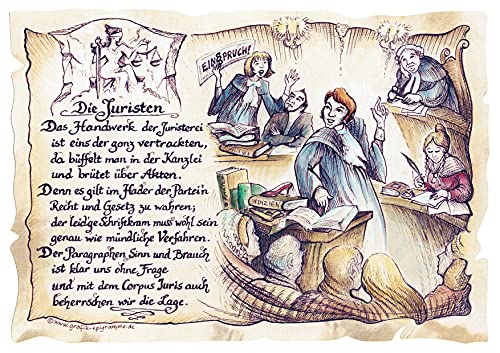 EINSPRUCH!
Die Juristen
Das Handwerk der Juristerei
ist eins der ganz vertrackten,
da büffelt man in der Kanzlei
und brütet über Akten.
Denn es gilt im Hader der Partei'n
Recht und Gesetz zu wahren;
der leid'ge Schriftkram muss wohl sein
genau wie mündliche Verfahren.
Der Paragraphen Sinn und Brauch
ist klar uns ohne Frage
und mit dem Corpus Juris auch
beherrschen wir die Lage.
INDIZIEN
©www.grafik-epigramme.de